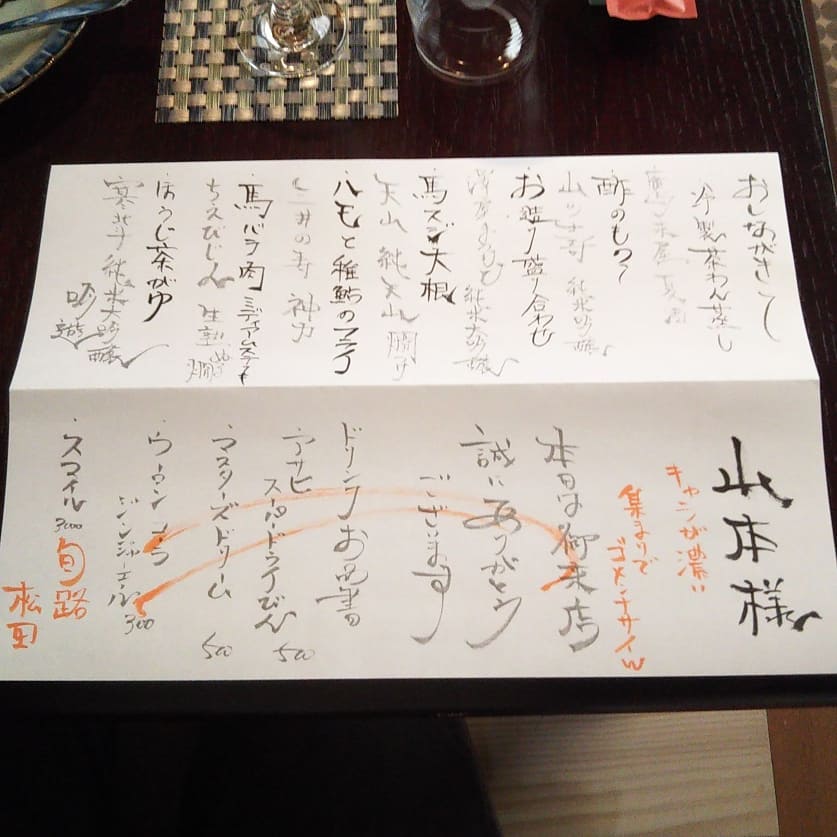 おしながきこ
冷製茶わん蒸し
酢のもの
純米吟醸
お造り盛り合わせ
純米大吟醸
馬スジ大根
天山 純天山 燗け
ハモと稚鮎のフライ
三井の寿 神力
馬バラ肉ミディアムステーキ
ちえびじん 生熟 燗
ほうじ茶がゆ
寒北斗 純米大吟醸
吟遊
山本様
キャラが濃い
集まりで
ゴメンナサイw
本日は御来店
誠にありがとう
ございます
ドリンクお品書
アサヒ
スーパードライびん 500
マスターズドリーム 500
ウーロン コーラ
ジンジャーエール 300
スマイル 300
旬路
松田